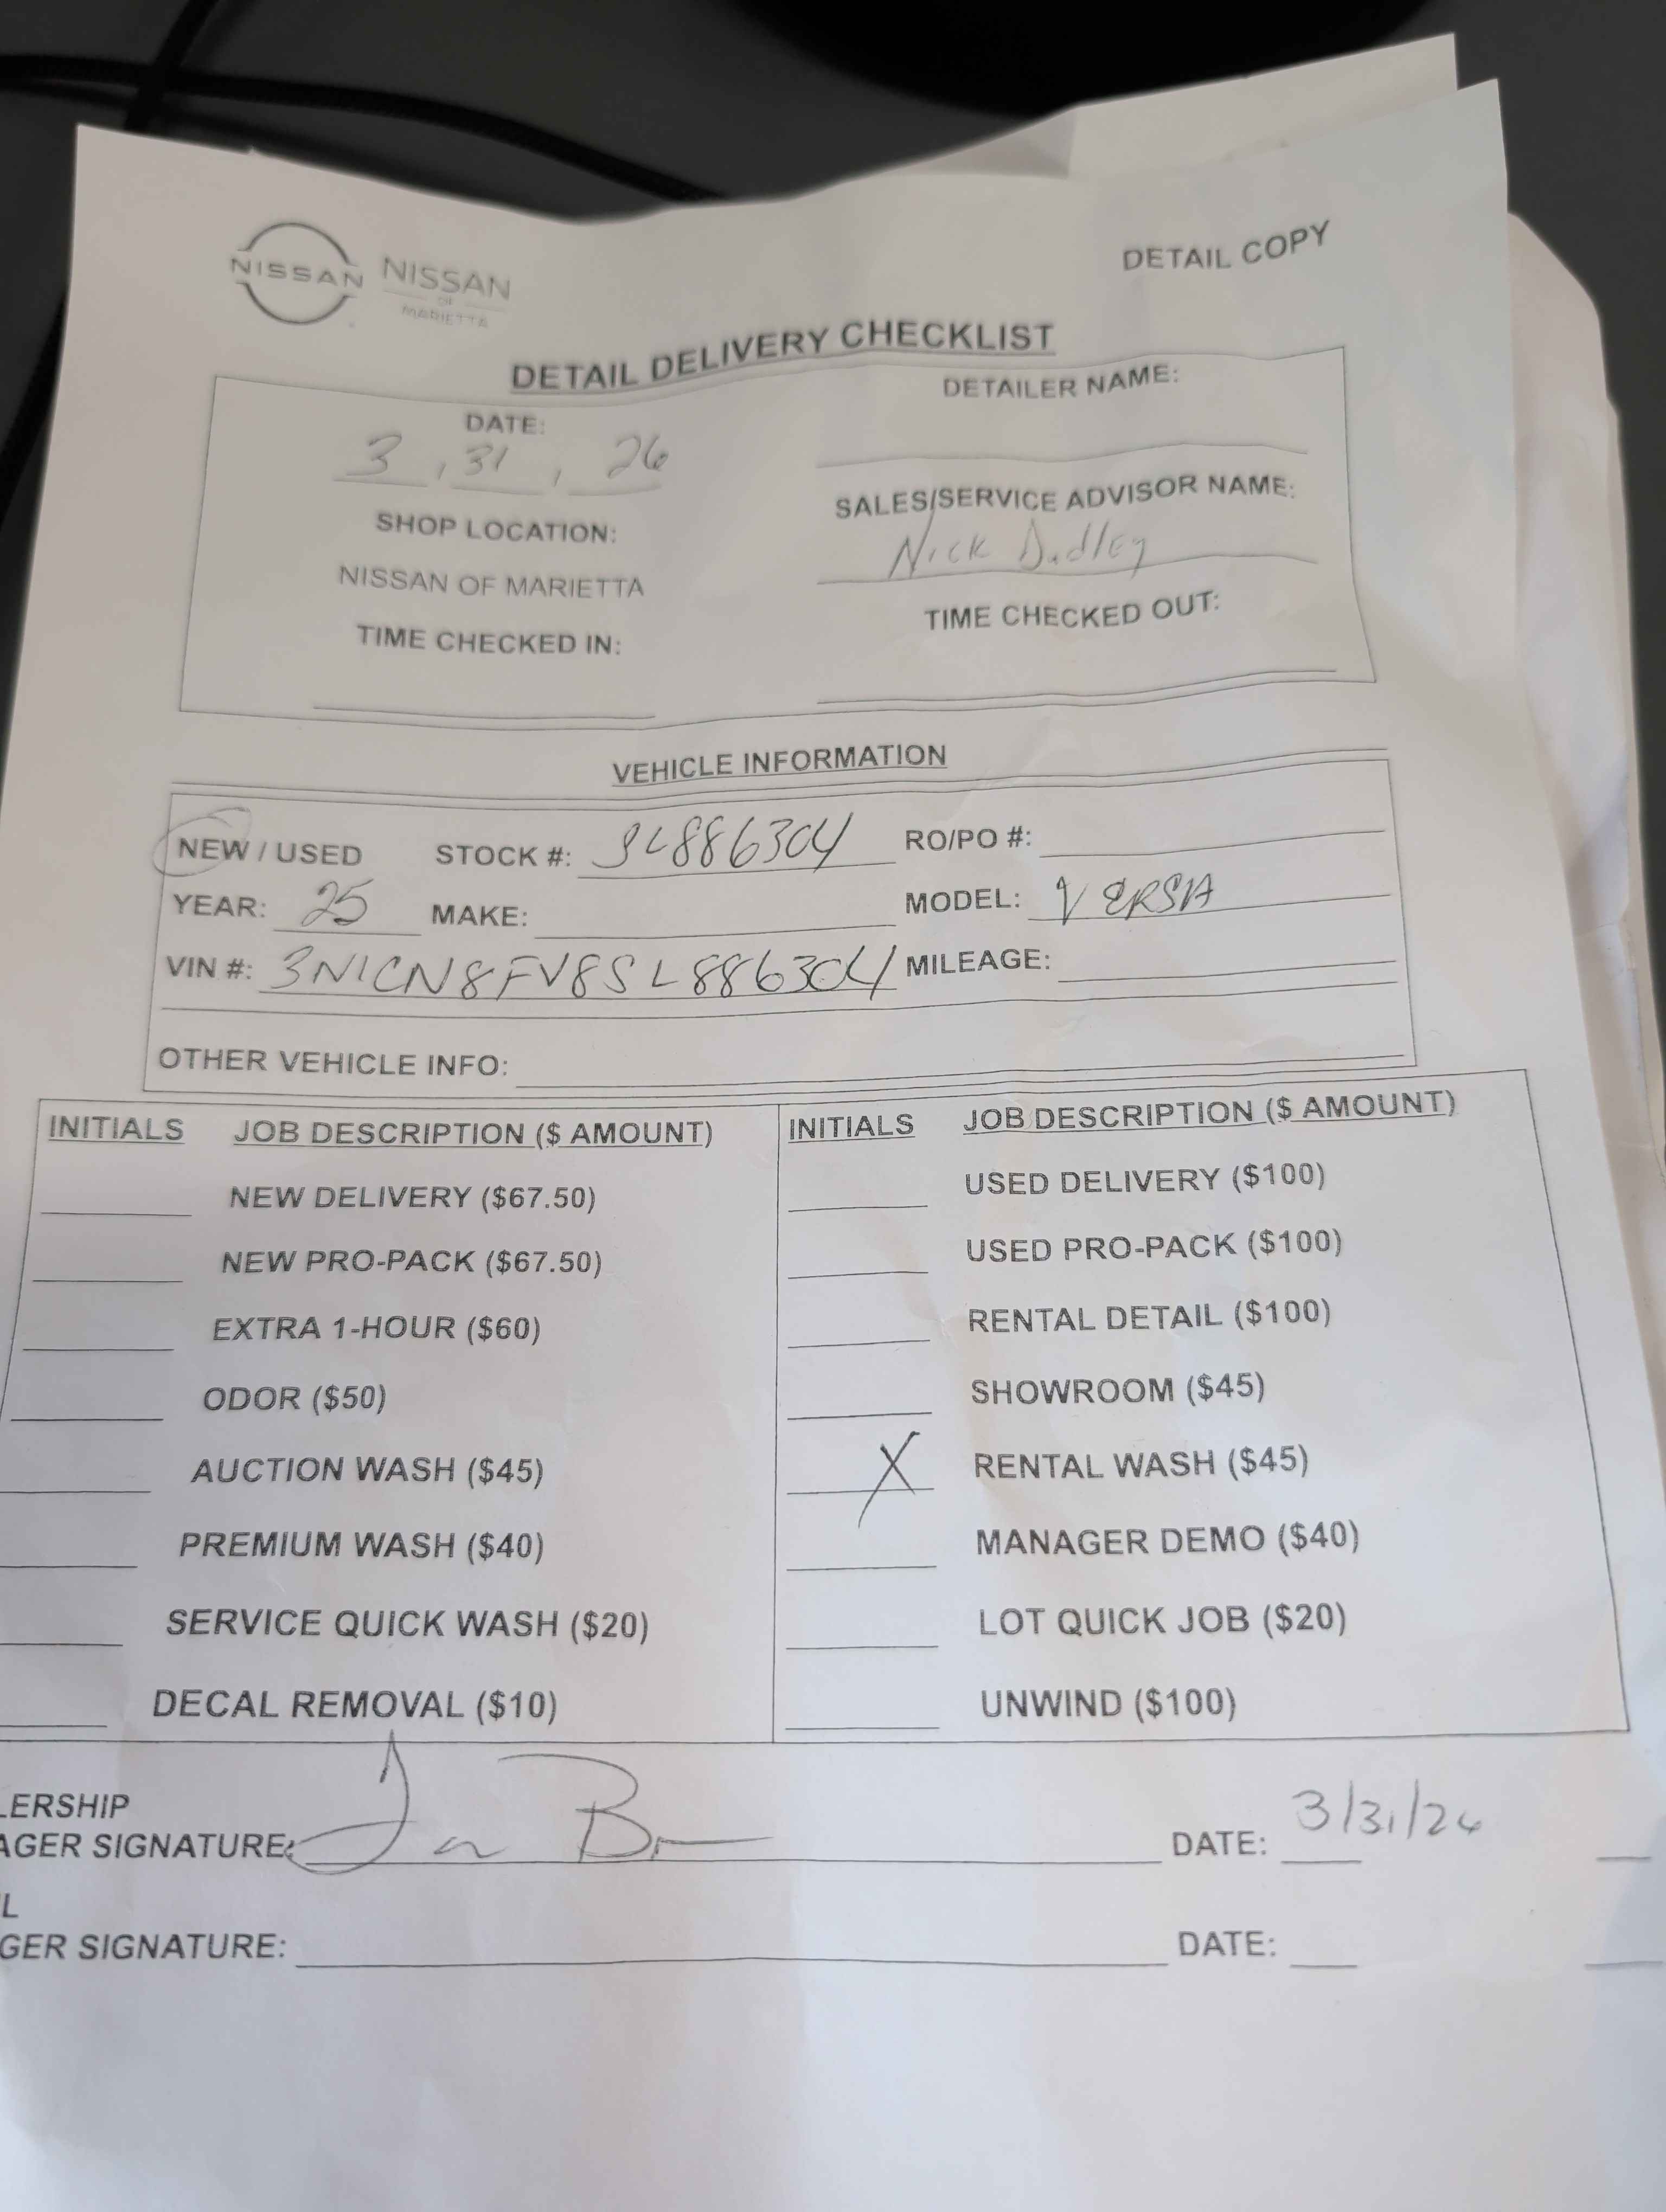 NISSAN NISSAN OF MARIETTA
DETAIL COPY
DETAIL DELIVERY CHECKLIST
DATE:
3 , 31 , 26
SHOP LOCATION:
NISSAN OF MARIETTA
TIME CHECKED IN:
DETAILER NAME:
SALES/SERVICE ADVISOR NAME:
Nick Dudley
TIME CHECKED OUT:
VEHICLE INFORMATION
NEW / USED STOCK #: SL886304 RO/PO #:
YEAR: 25 MAKE: MODEL: VERSA
VIN #: 3N1CN8FV8SL886304 MILEAGE:
OTHER VEHICLE INFO:
INITIALS JOB DESCRIPTION ($ AMOUNT)
NEW DELIVERY ($67.50)
NEW PRO-PACK ($67.50)
EXTRA 1-HOUR ($60)
ODOR ($50)
AUCTION WASH ($45)
PREMIUM WASH ($40)
SERVICE QUICK WASH ($20)
DECAL REMOVAL ($10)
INITIALS JOB DESCRIPTION ($ AMOUNT)
USED DELIVERY ($100)
USED PRO-PACK ($100)
RENTAL DETAIL ($100)
SHOWROOM ($45)
X RENTAL WASH ($45)
MANAGER DEMO ($40)
LOT QUICK JOB ($20)
UNWIND ($100)
LERSHIP
AGER SIGNATURE: DATE: 3/31/26
L
GER SIGNATURE: DATE: